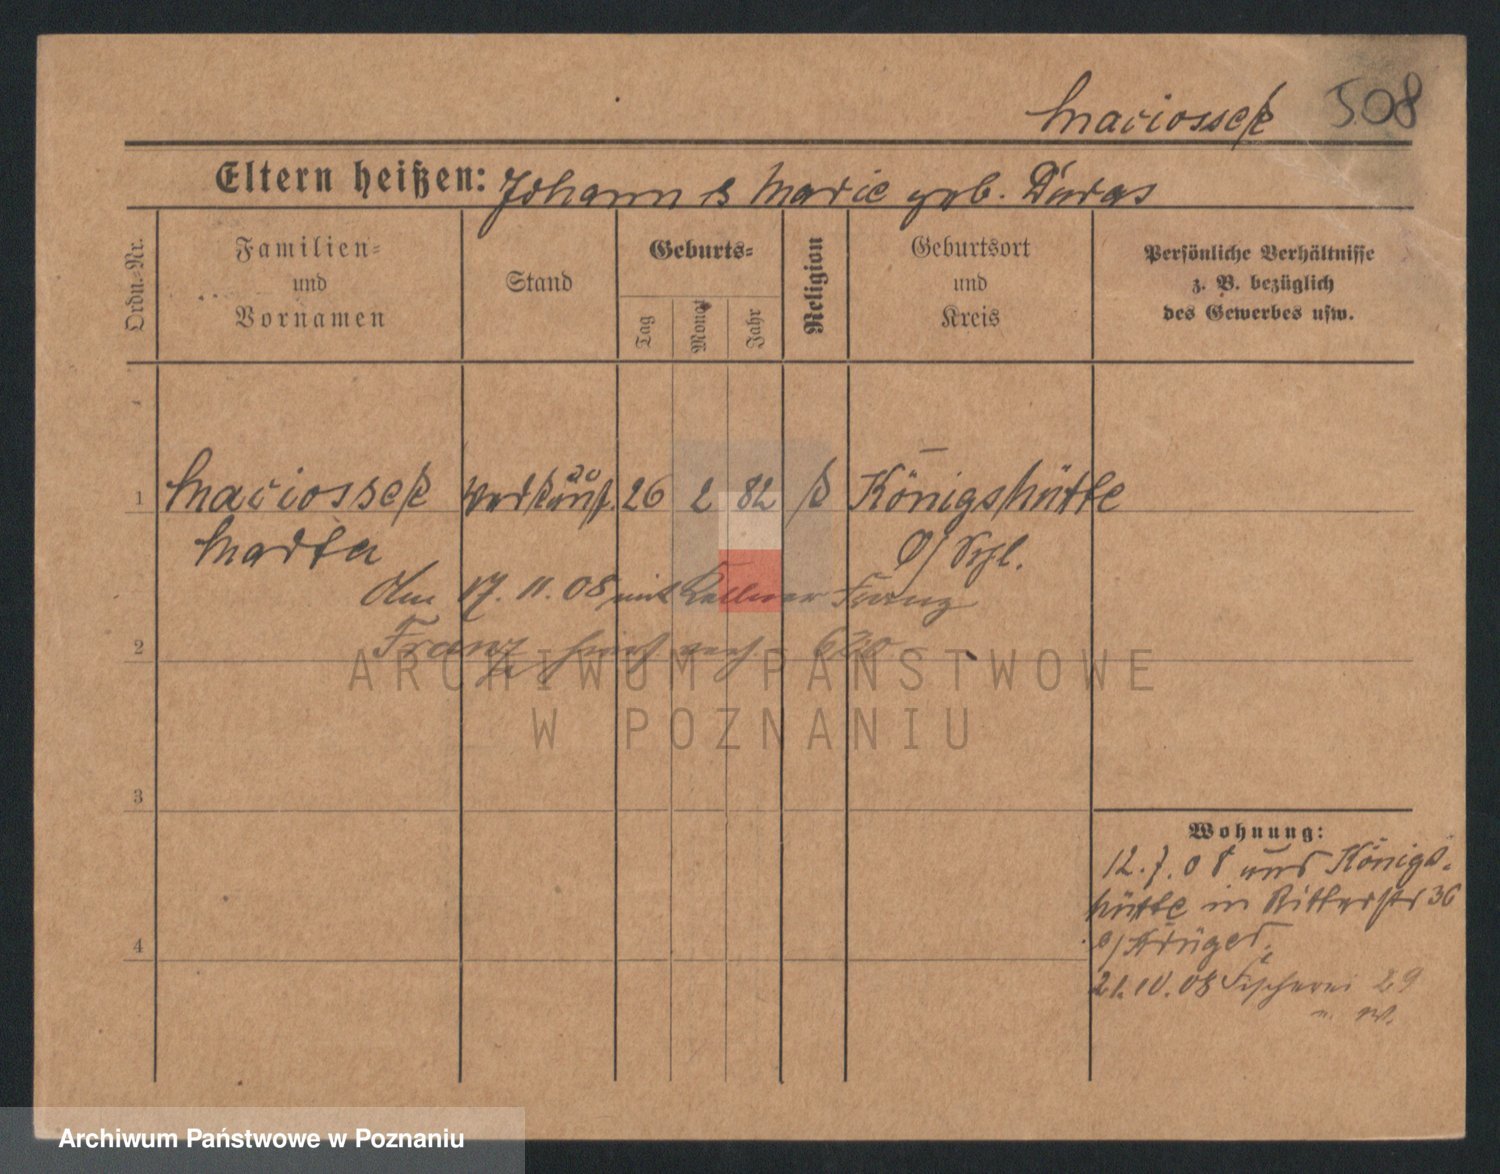 Maciossek 508
Eltern heißen: Johann & Marie geb. Duras
Ordn.-Nr.
Familien-
und
Vornamen
Stand
Geburts-
Tag
Monat
Jahr
Religion
Geburtsort
und
Kreis
Persönliche Verhältnisse
z. B. bezüglich
des Gewerbes usw.
1 Maciossek Verkäuf. 26 2 82 k Königshütte
Marta O/Schl.
Am 17. 11. 08 mit Kellner Franz
2 Franz
ARCHIWUM PAŃSTWOWE
W POZNANIU
3
Wohnung:
12. 7. 08 aus Königs-
hütte in Ritterstr 36
b/ Krüger.
4
21. 10. 08 Fischerei 29
Archiwum Państwowe w Poznaniu